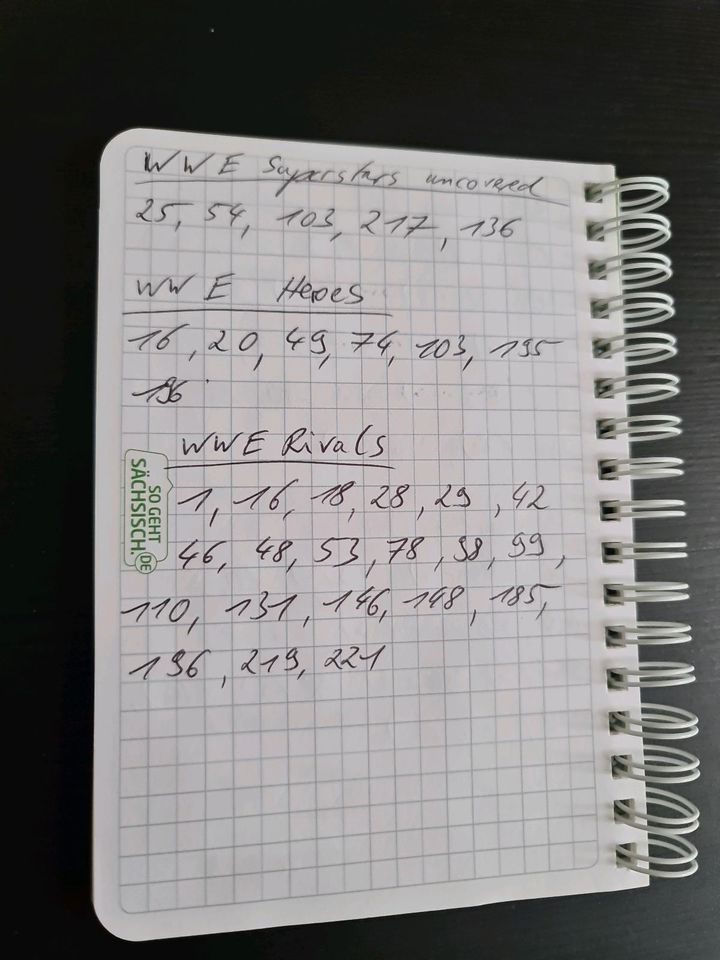 WWE Superstars uncovered
25, 54, 103, 217, 136
WWE Heroes
16, 20, 49, 74, 103, 195
196
WWE Rivals
1, 16, 18, 28, 29, 42
46, 48, 53, 78, 98, 99,
110, 131, 146, 148, 185,
196, 219, 221
SO GEHT
SÄCHSISCH.DE